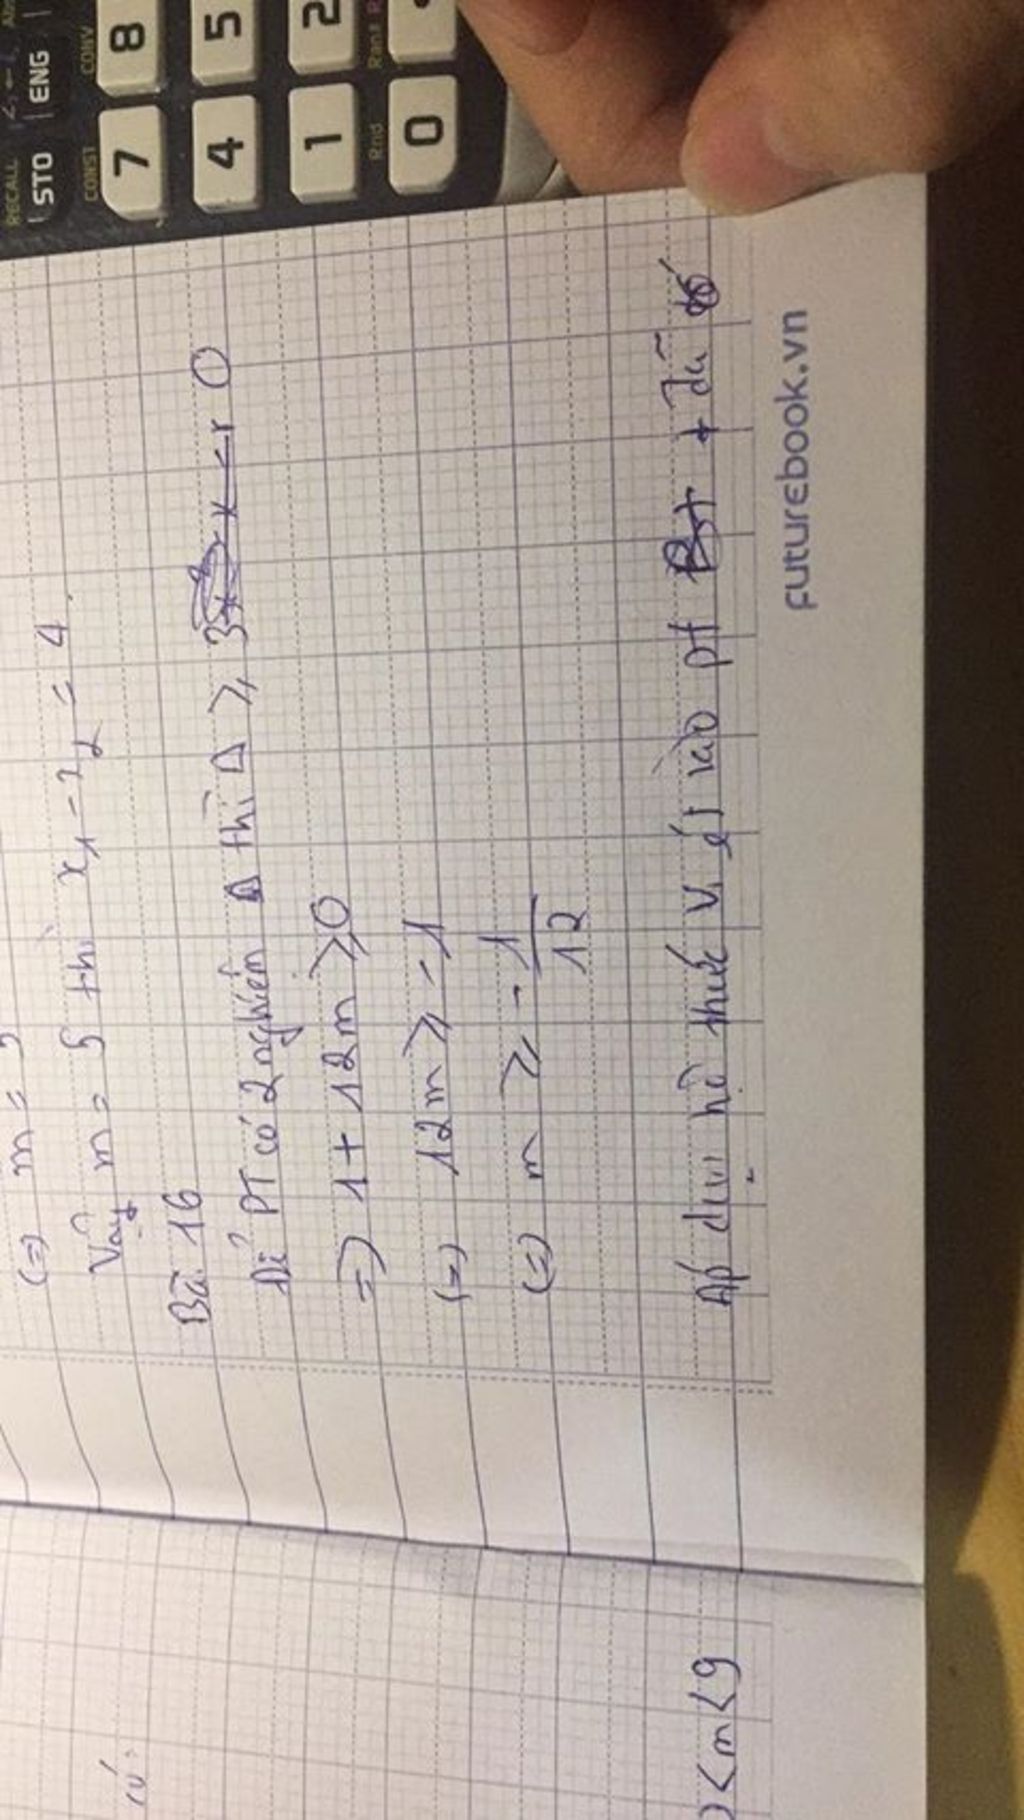 RECALL
STO
ENG
CONST
CONV
7
8
4
5
1
2
Rnd
Ran#
0
(=) m =
Vậy m = 5 thì x₁ - x₂ = 4.
Bài 16
Để PT có 2 nghiệm thì Δ ≥ 0
=) 1 + 12m ≥ 0
(=) 12m ≥ -1
(=) m ≥ -1/12
Áp dụng hệ thức Vi ét vào pt
futurebook.vn
< m < 9